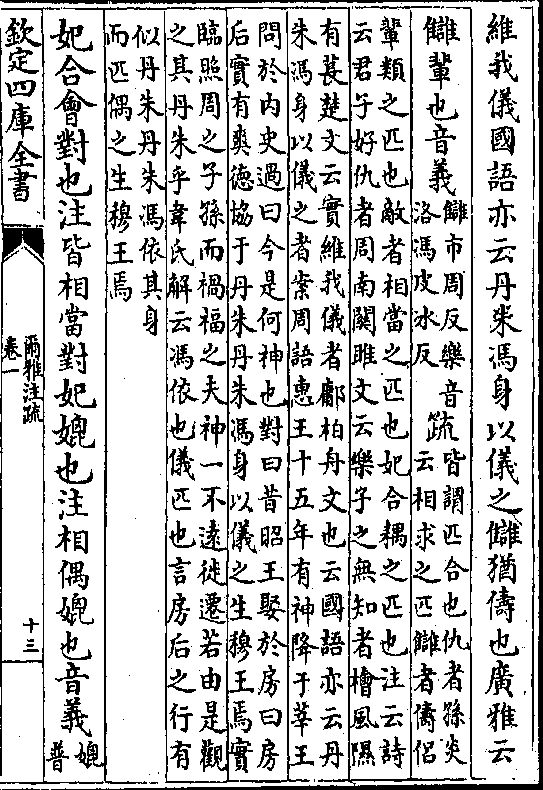 維我儀國語亦云丹朱馮身以儀之讎猶儔也廣雅云
讎輩也音義
讎市周反樂音
洛馮皮冰反
疏
皆謂匹合也仇者孫炎
云相求之匹讎者儔侶
輩類之匹也敵者相當之匹也妃合耦之匹也注云詩
云君子好仇者周南關雎文云樂子之無知者檜風隰
有萇楚文云實維我儀者鄘柏舟文也云國語亦云丹
朱馮身以儀之者案周語惠王十五年有神降于莘王
問於内史過曰今是何神也對曰昔昭王娶於房曰房
后實有爽德協于丹朱丹朱馮身以儀之生穆王焉實
臨照周之子孫而禍福之夫神一不遠徙遷若由是觀
之其丹朱乎韋氏解云馮依也儀匹也言房后之行有
似丹朱丹朱馮依其身
而匹偶之生穆王焉
妃合會對也注皆相當對妃媲也注相偶媲也音義
媲
普
欽定四庫全書
爾雅注疏
卷一
十三